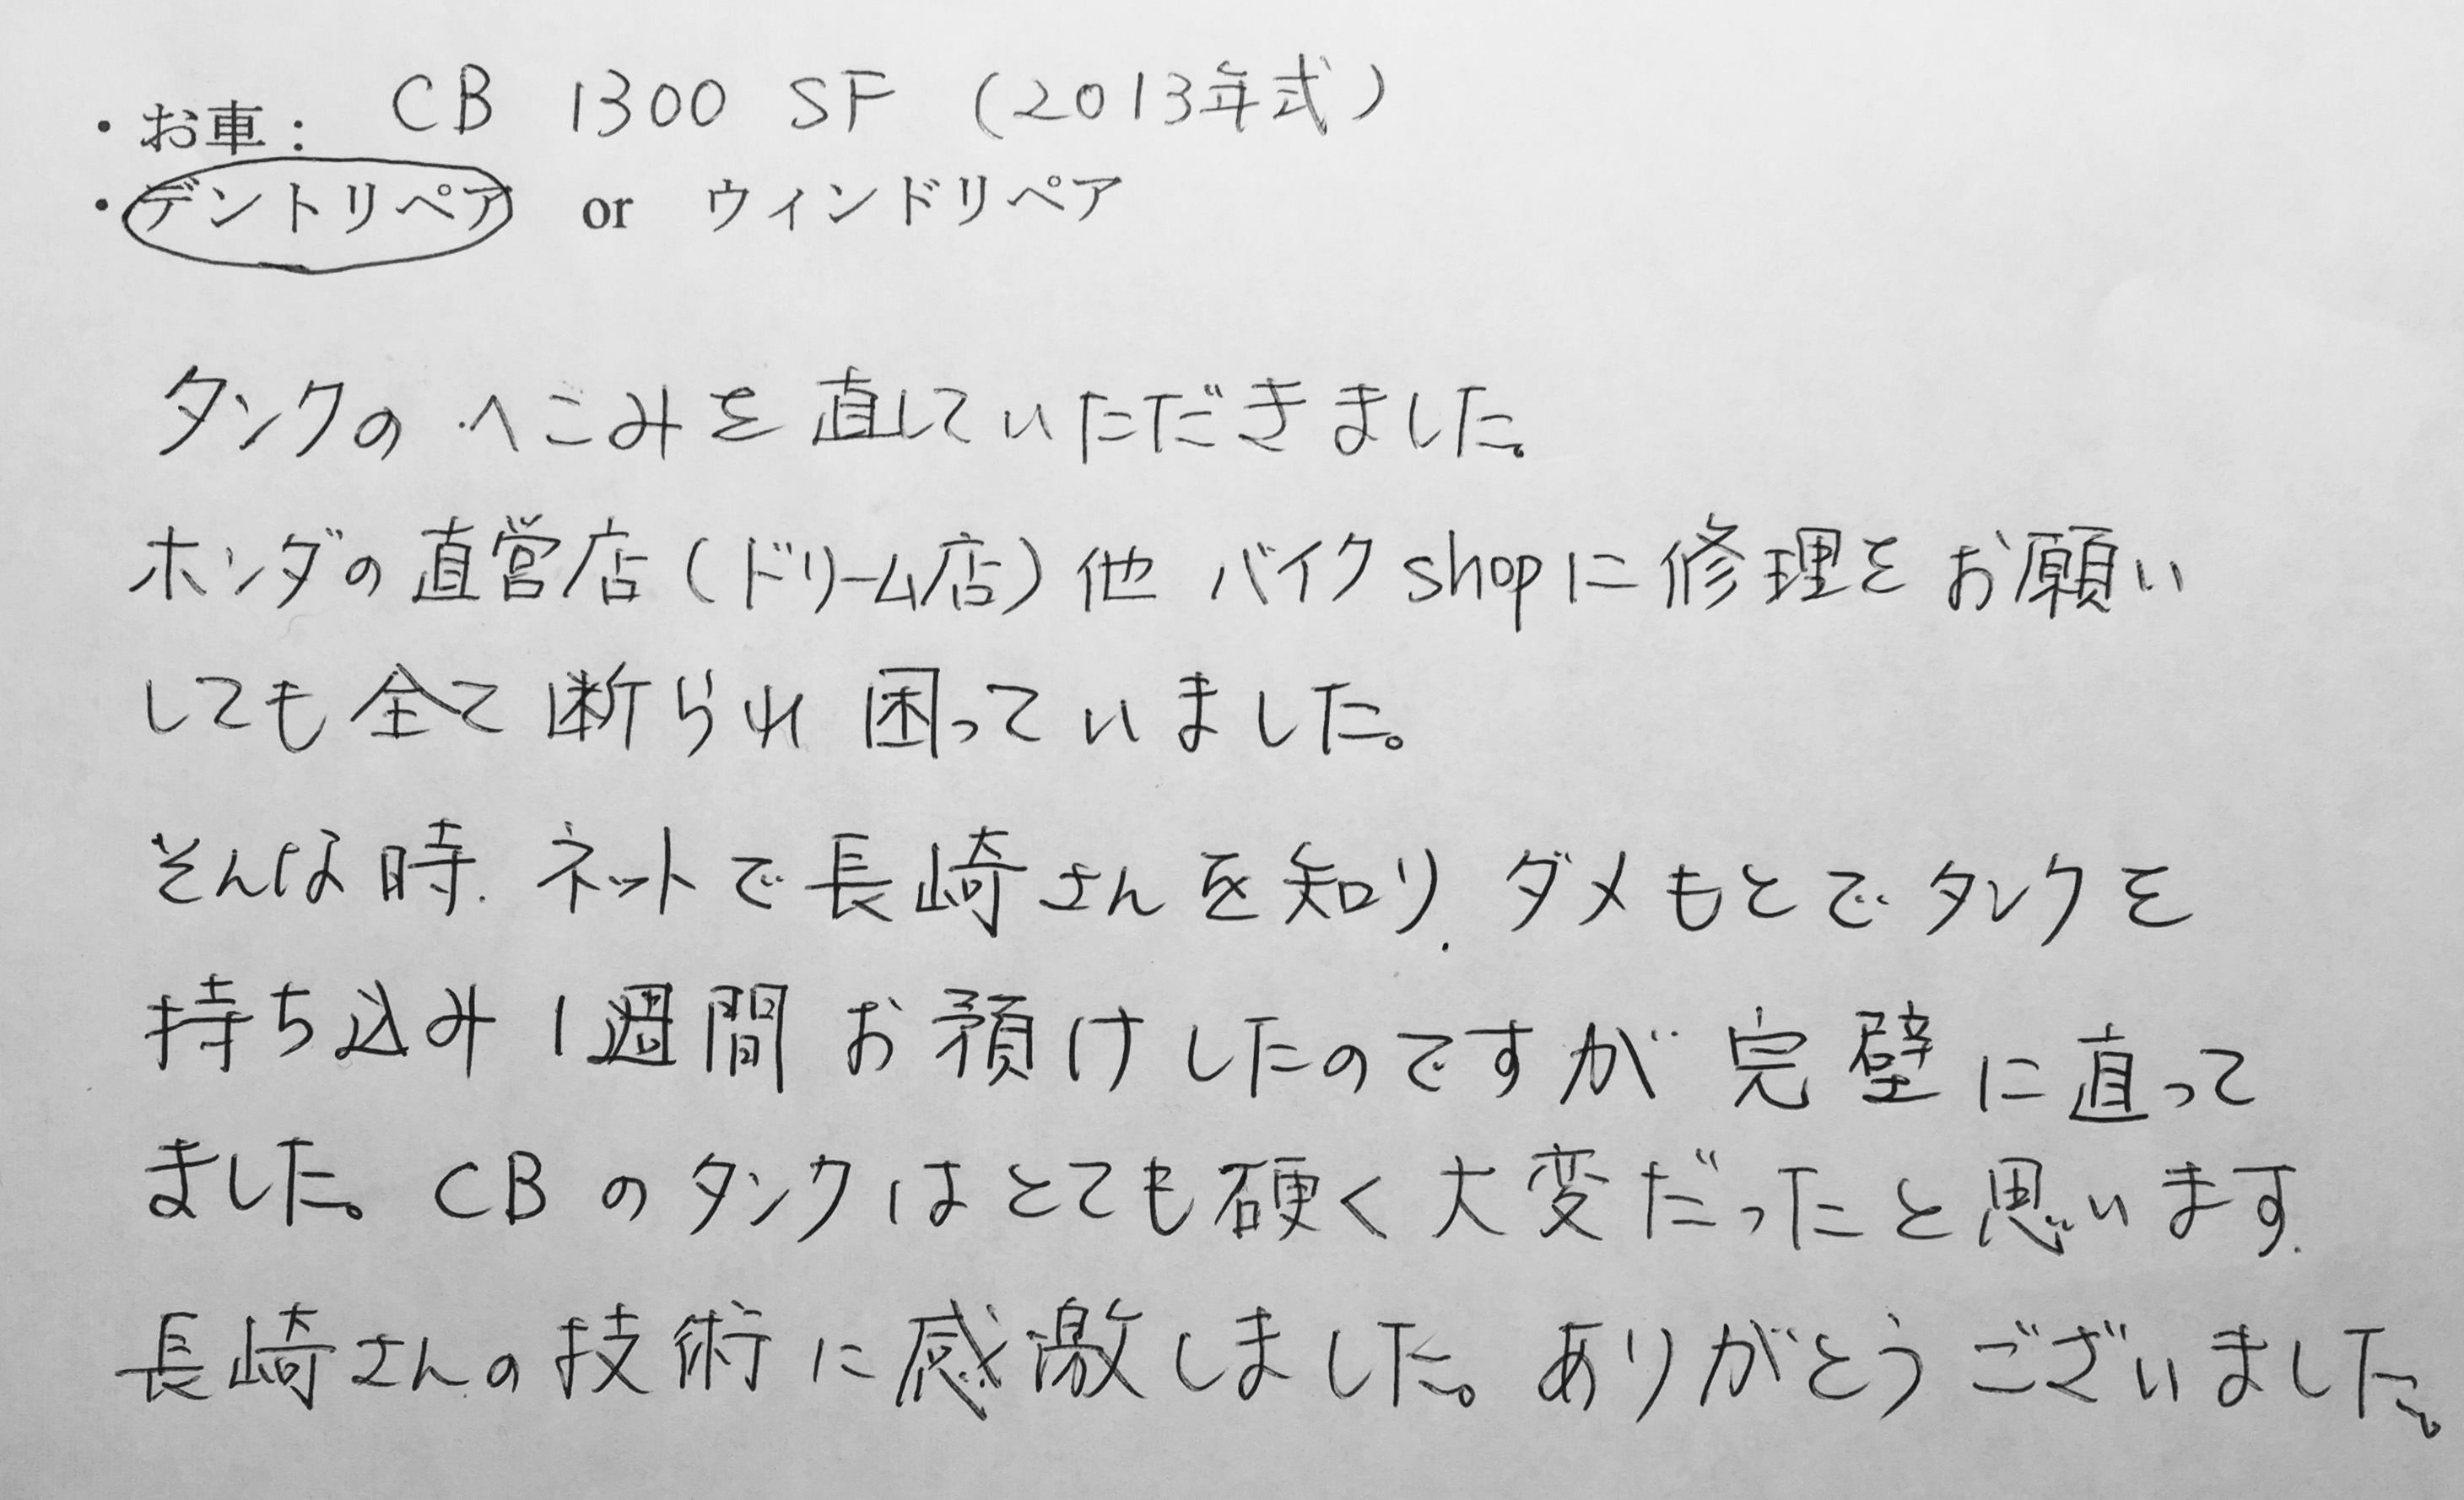 ・お車： CB 1300 SF (2013年式)
・デントリペア or ウィンドリペア
タンクの へこみを 直していただきました。
ホンダの直営店(ドリーム店)他 バイクshopに修理をお願い
しても 全て 断られ 困っていました。
そんな時、ネットで長崎さんを知り、ダメもとでタンクを
持ち込み 1週間 お預けしたのですが 完璧に直って
ました。CBのタンクはとても硬く大変だったと思います。
長崎さんの技術に感激しました。ありがとうございました。